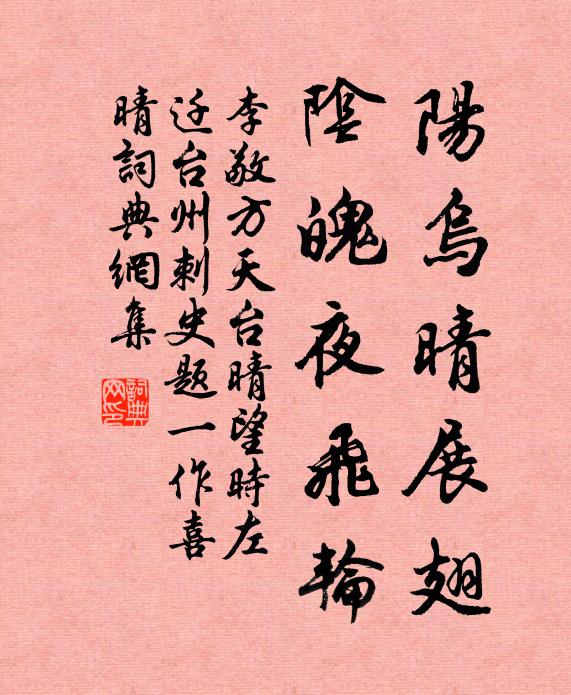 陽烏晴展翅
陰魄夜飛輪
李敬方天台晴望時左
迁台州刺史題一作喜
晴詞典網集
詞典网印